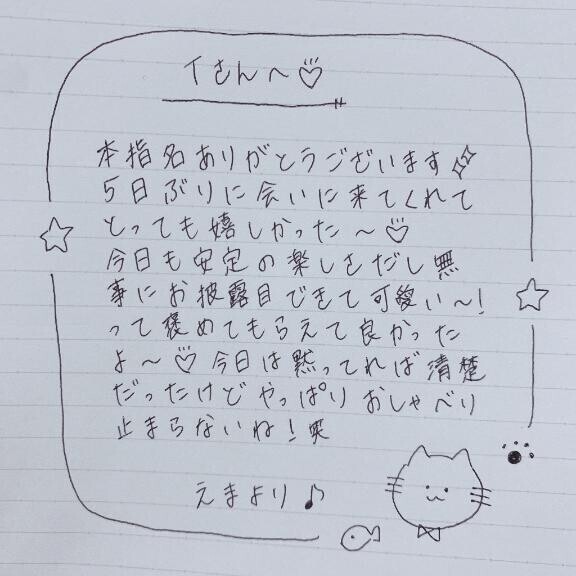 Tさん〜♡
本指名ありがとうございます✨
5日ぶりに会いに来てくれて
とっても嬉しかった〜♡
今日も安定の楽しさだし無
事にお披露目できて可愛い〜!
って褒めてもらえて良かった
よ〜♡今日は黙ってれば清楚
だったけどやっぱりおしゃべり
止まらないね!笑
えまより♪